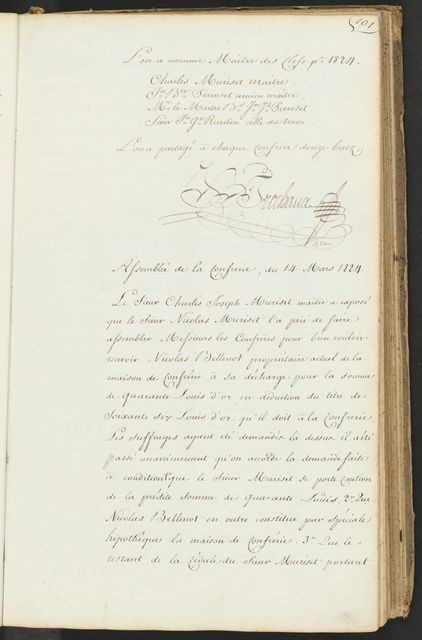 101
L'on a nommé Maitre des Clefs pr. 1824.
Charles Muriset maitre
Jn. Bte. Perroset ancien maitre
Mr. le Maitre Bs. Jn. Js. Perroset
Sieur Jn. Gl. Ruedin celle du trone
L'on a partagé à chaque Confrère douze batz
Frochaux
Assemblée de la Confrérie, du 14 Mars 1824
Le Sieur Charles Joseph Muriset maitre a exposé
que le Sieur Nicolas Muriset l'a prié de faire
assembler Messieurs les Confrères pour bien vouloir
recevoir Nicolas Bellenot propriétaire actuel de la
maison de Confrérie, à sa décharge pour la somme
de quarante Louis d'or en déduction du titre de
Soixante six Louis d'or qu'il doit à la Confrérie.
Les Suffrages ayant été demandés là dessus il a été
passé unanimement qu'on accorde la demande faite
à condition que le Sieur Muriset se porte Caution
de la prédite somme de quarante Louis, 2º. Que
Nicolas Bellenot en outre constitue par spéciale
hipothèque la maison de Confrérie. 3º. Que le
restant de la Cédule du Sieur Muriset portant